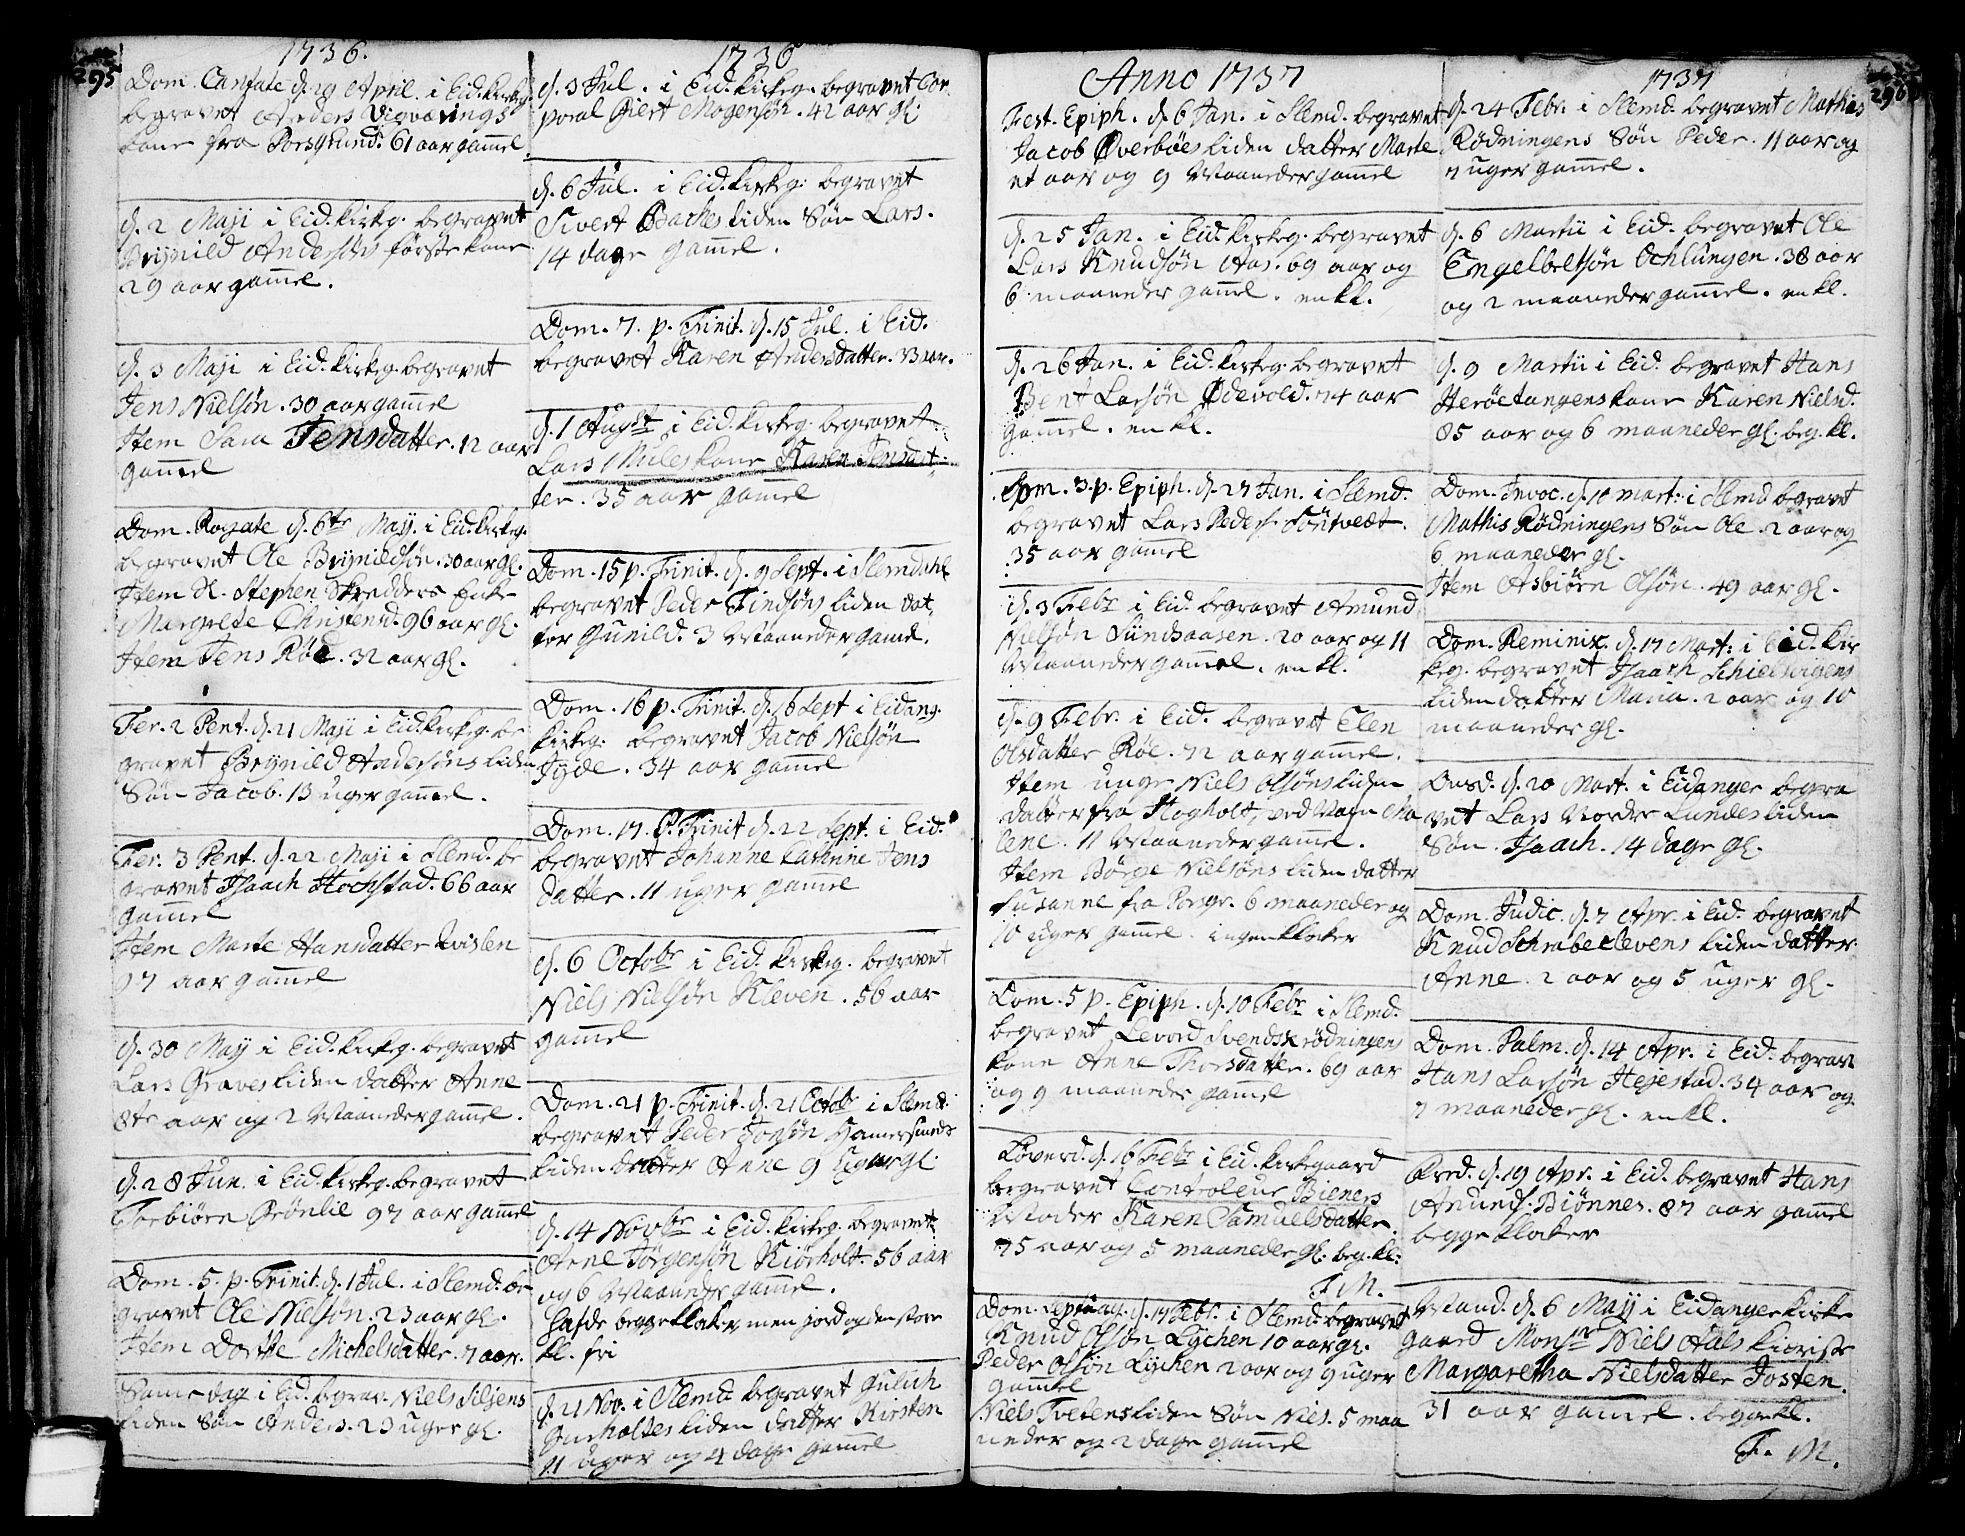 295
1736.
Dom. Cantate d. 29 April. i Eid. kirkg.
begravet Anders Vigværings
kone fra Porsgrund. 61 aar gammel
d. 2 Maji i Eid. kirkg. begravet
Brynild Andersøns første kone
29 aar gammel.
d. 3 Maji i Eid. kirkg. begravet
Jens Nielsøn. 30 aar gammel
Item Sara Jensdatter. 12 aar
gammel
Dom. Rogate d. 6te Maij. i Eid. kirkg.
begravet Ole Brynildsøn. 30 aar gl.
Item Sl. Stephen Skredders Enke
Margrete Christensd. 96 aar gl.
Item Jens Röe. 32 aar gl.
Fer. 2 Pent. d. 21 Maji i Eid. kirkg. be
gravet Brynild Andersøns liden
Søn Jacob. 13 uger gammel.
Fer. 3 Pent. d. 22 Maji i Slemd. be
gravet Isaach Hochstad. 66 aar
gammel
Item Marte Hansdatter
97 aar gammel
d. 30 Maij i Eid. kirkg. begravet
Lars Graves liden datter Anne
8te aar og 2 Maaneder gammel.
d. 28 Jun. i Eid. kirkg. begravet
Torbiörn Grönlie 97 aar gammel
Dom. 5. p. Trinit. d. 1 Jul. i Slemd. be
gravet Ole Nielsøn. 23 aar gl.
Item Dorthe Michelsdatter. 7 aar.
Same dag i Eid. begrav. Niels Siljens
liden Søn Anders. 23 uger gl.
1736
d. 3 Jul. i Eid. kirkg. begravet Cor
poral Giert Mogensøn. 42 aar gl
d. 6 Jul. i Eid. kirkg. begravet
Sivert Baches liden Søn Lars.
14 dage gammel.
Dom. 7. p. Trinit. d. 15 Jul. i Eid.
begravet Karen Andersdatter. 33 aar.
d. 1 Augst. i Eid. kirkg. begravet
Lars Mules kone Karen Jensdat
ter. 35 aar gammel
Dom. 15 p. Trinit. d. 9 Sept. i Slemdahl
begravet Peder Findsøns liden dat,
ter Gunild. 3 Maaneder gamel.
Dom. 16 p. Trinit. d. 16 Sept i Eidang.
kirkg. begravet Jacob Nielsøn
Jyde. 34 aar gammel
Dom. 17. P. Trinit d. 22 Sept. i Eid.
begravet Johanne Cathrine Jens
datter. 11 uger gammel
d. 6 Octobr i Eid. kirkg. begravet
Niels Nielsøn Kleven. 56 aar
gammel
Dom. 21 p. Trinit. d. 21 Octobr i Slemd.
begravet Peder Hamersmeds
liden datter Anne 9 uger gl
d. 14 Novbr i Eid. kirkg. begravet
Arne Jörgensøn Kiörholt. 56 aar
og 6 Maaneder gammel.
hafde begge klaker men jord og den store
kl. fri
d. 21 Nov. i Slemd begravet Gulich
Gurholtes liden datter Kirsten
11 uger og 4 dage gammel
Anno 1737
Fest. Epiph. d. 6 Jan. i Slemd. begravet
Jacob Överböes liden datter Marte
et aar og 9 Maaneder gamel
d. 25 Jan. i Eid. kirkg. begravet
Lars Knudsøn Aas. 69 aar og
6 maaneder gammel. en kl.
d. 26 Jan. i Eid. kirkg. begravet
Bent Larsøn Ödevold. 74 aar
gammel. en kl.
Dom. 3. p. Epiph. d. 27 Jan. i Slemd.
begravet Lars Peders. Söntvedt.
35 aar gammel
d. 3 Febr i Eid. begravet Amund
Nielsøn Sundsaasen. 20 aar og 11
Maaneder gammel. en kl.
d. 9 Febr. i Eid. begravet Elen
Olsdatter Röe. 72 aar gammel.
Item unge Niels Olsøns liden
datter fra Hogholt, ved Navn Ma
lene. 11 Maaneder gammel.
Item Börge Nielsøns liden datter
Susanne fra Porsgr. 6 maaneder og
10 uger gammel. ingen klaker
Dom. 5 p. Epiph. d. 10 Febr i Slemd.
begravet Levord Svends Rödningens
kone Anne Thorsdatter. 69 aar
og 9 maaneder gammel
Löverd. d. 16 Febr i Eid. kirkegaard
begravet Controleur Bieners
Moder Karen Samuelsdatter
75 aar og 5 maaneder gl. beg. kl.
F. M.
Dom. Septuag. d. 17 Febr. i Slemd. begravet
Knud Olsøn Lychen 10 aar gl.
Peder Olsøn Lychen 2 aar og 9 uger
gammel
Niels Tvetens liden Søn Niels. 5 maa
neder og 2 dage gammel
1737
296
d. 24 Febr. i Slemd. begravet Mathies
Rödningens Søn Peder. 11 aar og
7 uger gammel.
d. 6 Martii i Eid. begravet Ole
Engelbeltsøn Ochlungen. 38 aar
og 2 maaneder gammel. en kl.
d. 9 Martii i Eid. begravet Hans
Heröetangens kone Karen Nielsd.
85 aar og 6 maaneder gl. beg. kl.
Dom. Invoc. d. 10 Mart. i Slemd begravet
Mathis Rödningens Søn Ole. 2 aar og
6 maaneder gl.
Item Asbiörn Olsøn. 49 aar gl.
Dom. Reminix. d. 17 Mart. i Eid. kir
keg. begravet Isaach Schielsvigens
liden datter Maria. 2 aar og 10
maaneder gl.
Onsd. d. 20 Mart. i Eidanger begra
vet Lars Nordre Lundes liden
Søn. Isaach. 14 dage gl.
Dom. Judic. d. 7 Apr. i Eid. begravet
Knud Schrabeclevens liden datter
Anne. 2 aar og 5 uger gl.
Dom. Palm. d. 14 Apr. i Eid. begrav
Hans Larsøn Hejestad. 34 aar og
7 maaneder gl. en kl.
Fred. d. 19 Apr. i Eid. begravet Hans
Amunds. Biönnes. 87 aar gammel
begge klaker
Mand. d. 6 Maij i Eidanger kirke
gaard Monsr Niels Aals kiæriste
Margaretha Nielsdatter Josten.
31 aar gammel. begge kl.
F. M.